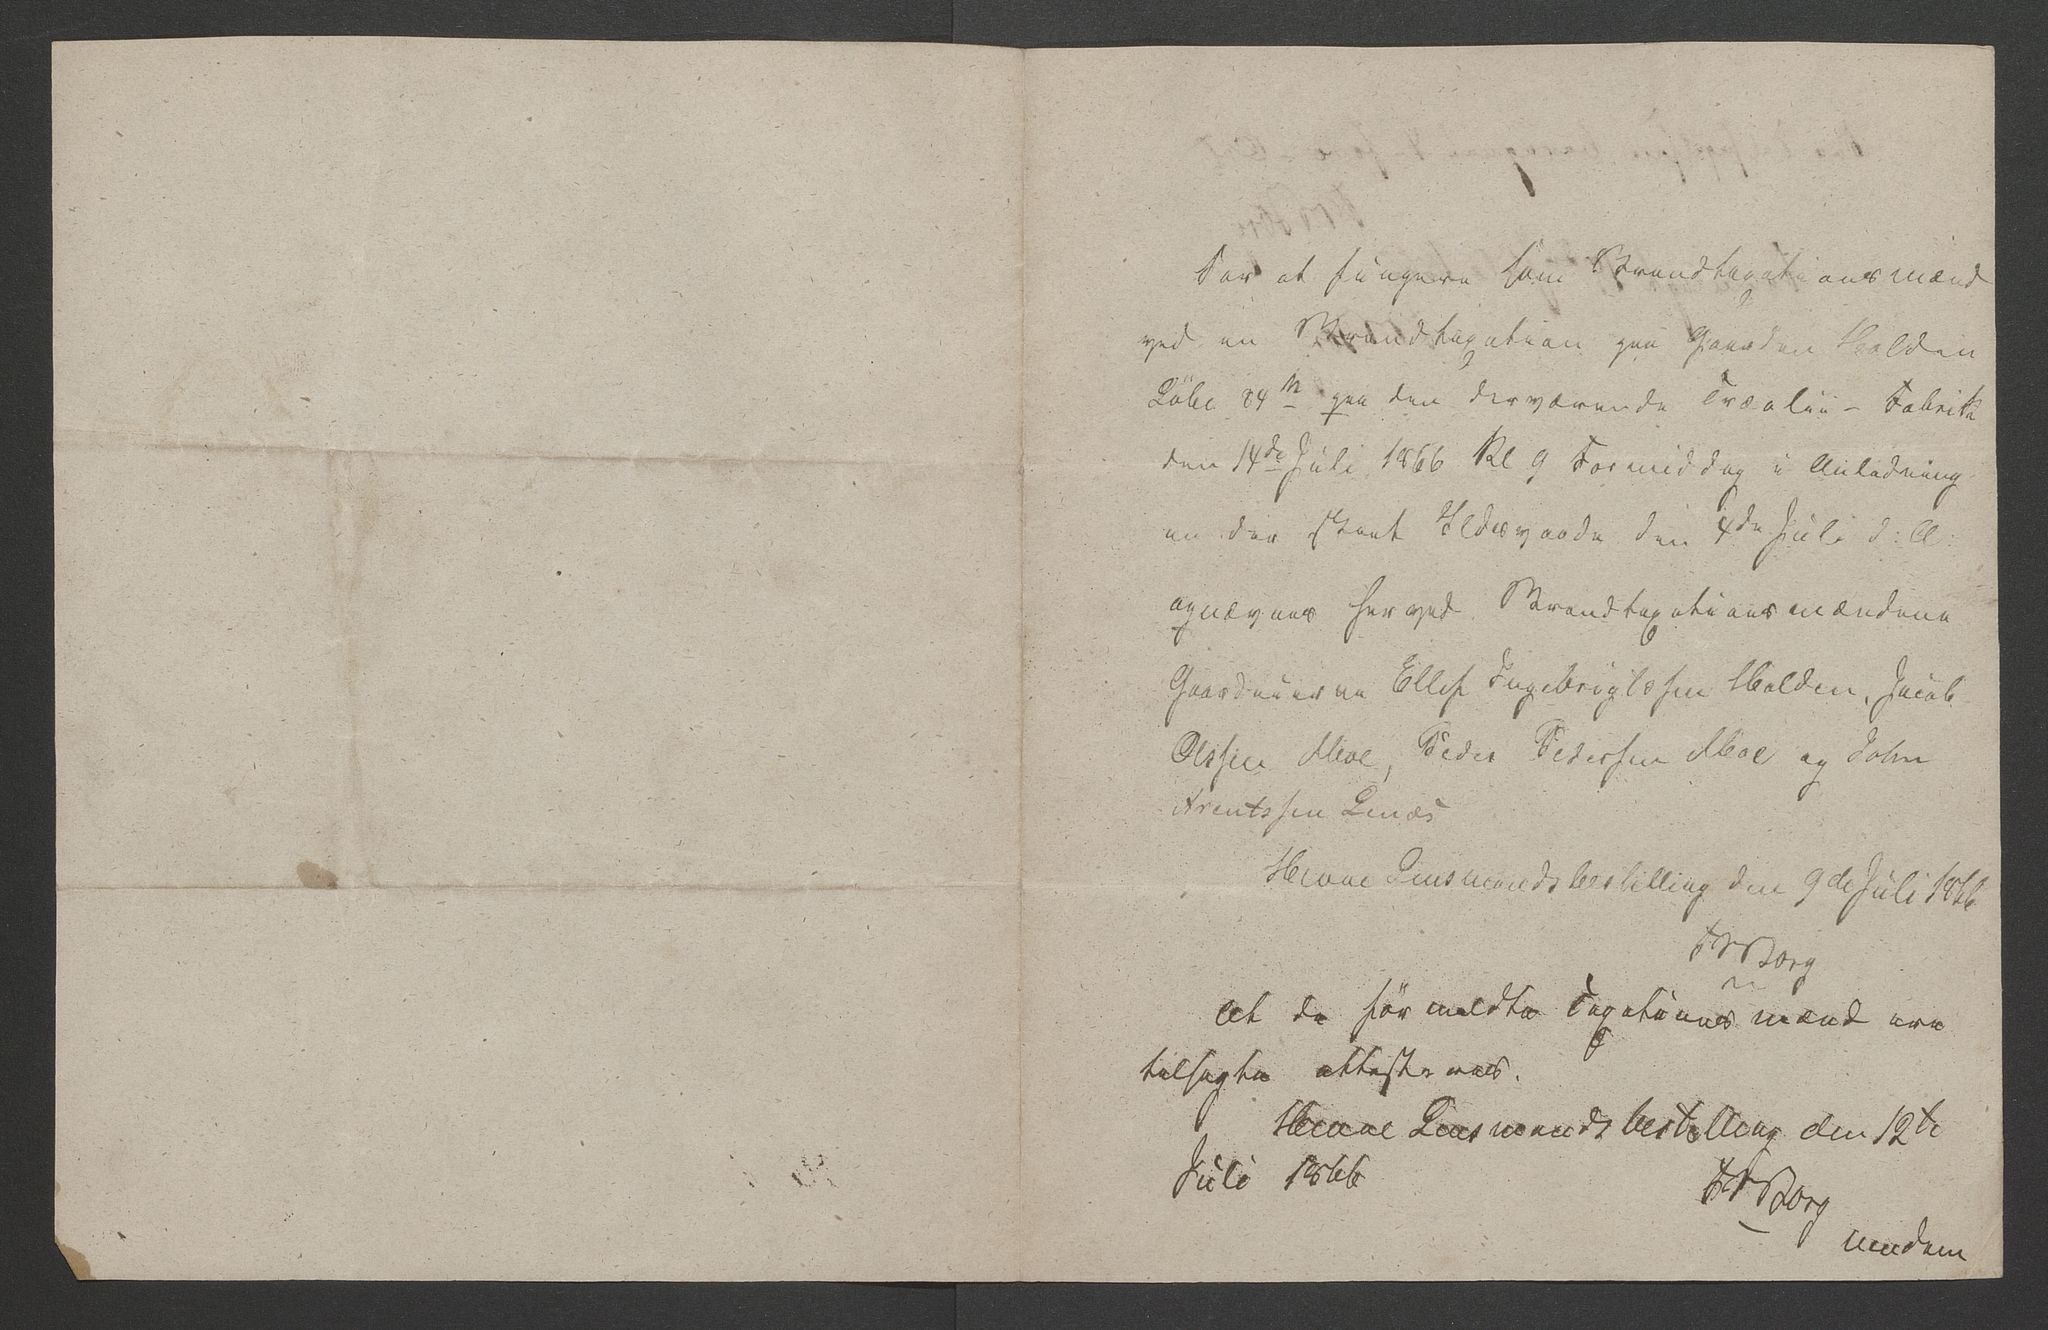 For at fungere som Brandtaxationsmænd
ved en Brandtaxation paa Gaarden Holden
Løbe 84 paa den derværende Træslii-Fabrik
den 14de Juli 1866 Kl 9 Formiddag i Anledning
en der skeet Ildsvaade den 4de Juli d: A:
opnævnes herved Brandtaxationsmændene
Gaardeierne Ellef Ingebrigtssen Holden, Jacob
Olssen Moe, Peder Pederssen Moe og John
Arentssen Lenæs
Hemne Lensmandsbestilling den 9de Juli 1866
Borg
At de førmeldte Taxationsmænd ere
tilsagte attesteres.
Hemne Lensmandsbestilling den 12te
Juli 1866
Borg
vendem